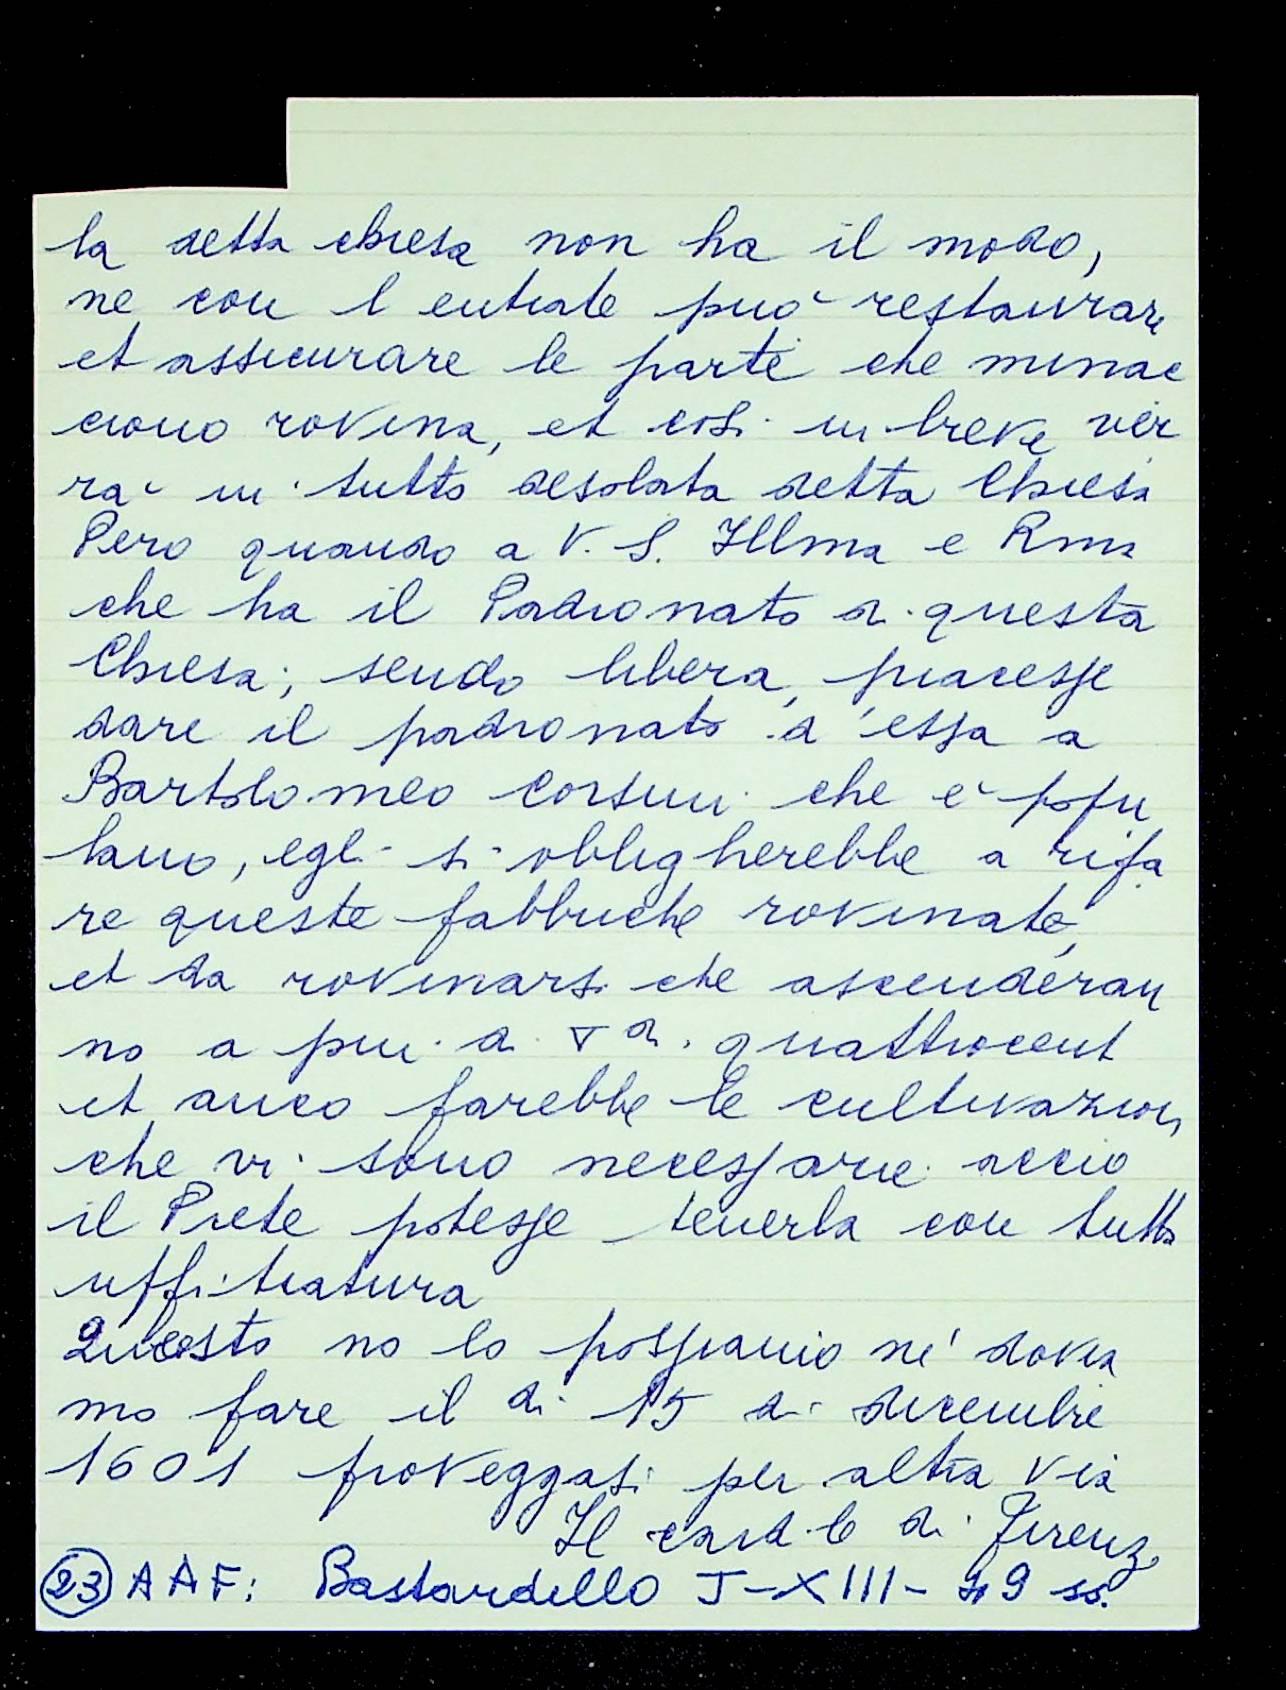 la detta chiesa non ha il modo,
ne con l entrate può restaurare
et assicurare le parte che minac
ciono rovina, et così in breve ver
rà in tutto desolata detta Chiesa
Pero quando a V. S. Illma e Rma
che ha il Padronato di questa
Chiesa; sendo libera, piacesse
dare il padronato d'essa a
Bartolomeo Corsini che è popu
lano, egli si obligherebbe a rifa
re queste fabbriche rovinate,
et da rovinarsi che ascenderan
no a piu di ▽ di quattrocent
et anco farebbe le cultivazioni
che vi sono necessarie accio
il Prete potesse tenerla con tutta
uffitiatura
Questo no lo possiamo né dovia
mo fare il di 15 di dicembre
1601 proveggasi per altra via
Il card.le di Firenze
23 AAF: Bastardello I-XIII- 49 ss.